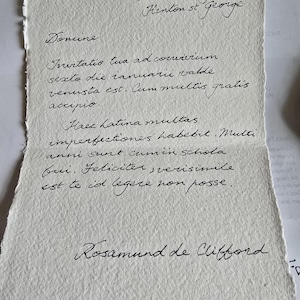 Hinton St George
Domine
Invitatio tua ad convivium
sexto die ianuarii valde
venusta est. Cum multis gratis
accipio
Haec Latina multas
imperfectiones habebit. Multi
anni sunt cum in schola
fui. Feliciter, verisimile
est te id legere non posse.
Rosamund de Clifford